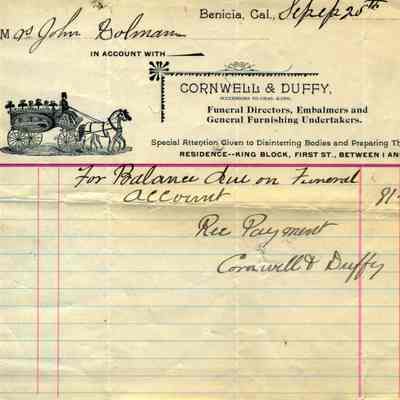 Benicia, Cal., Sept 25th
Mrs John Holman
IN ACCOUNT WITH
CORNWELL & DUFFY,
Funeral Directors, Embalmers and
General Furnishing Undertakers.
Special Attention Given to Disinterring Bodies and Preparing Th
RESIDENCE--KING BLOCK, FIRST ST., BETWEEN 1 AN
For Balance due on Funeral
account 91
Rec Payment
Cornwell & Duffy